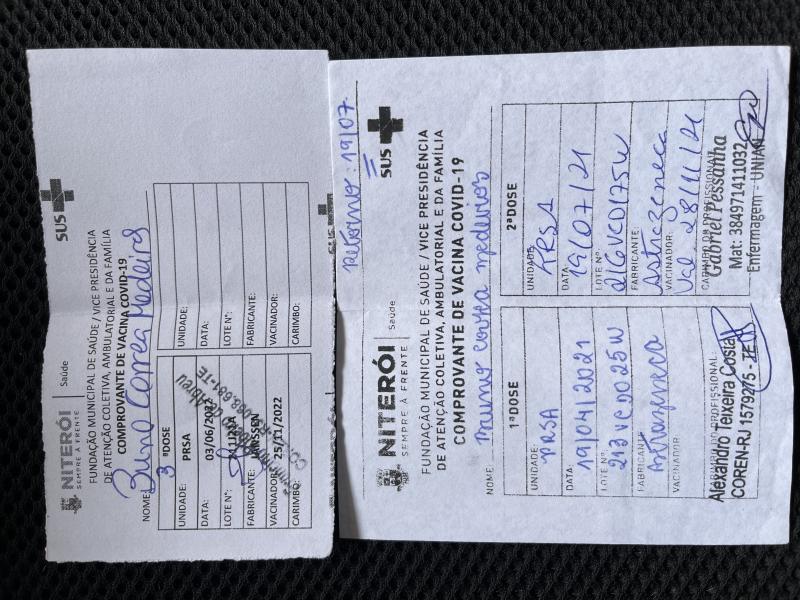 NITERÓI
SEMPRE À FRENTE
Saúde
SUS
FUNDAÇÃO MUNICIPAL DE SAÚDE / VICE PRESIDÊNCIA
DE ATENÇÃO COLETIVA, AMBULATORIAL E DA FAMÍLIA
COMPROVANTE DE VACINA COVID-19
NOME: Bruno Correa Medeiros
3ªDOSE
UNIDADE: PRSA
DATA: 03/06/2022
LOTE Nº:
FABRICANTE: JANSSEN
VACINADOR: 25/11/2022
CARIMBO:
UNIDADE:
DATA:
LOTE Nº:
FABRICANTE:
VACINADOR:
CARIMBO:
Retorno: 19/07
NITERÓI
SEMPRE À FRENTE
Saúde
SUS
FUNDAÇÃO MUNICIPAL DE SAÚDE / VICE PRESIDÊNCIA
DE ATENÇÃO COLETIVA, AMBULATORIAL E DA FAMÍLIA
COMPROVANTE DE VACINA COVID-19
NOME Bruno Correa Medeiros
1ªDOSE
UNIDADE: PRSA
DATA: 19/04/2021
LOTE Nº: 213VCD025W
FABRICANTE: Astrazeneca
VACINADOR:
CARIMBO DO PROFISSIONAL
Alexandro Teixeira Costa
COREN-RJ 1579275 - TE
2ªDOSE
UNIDADE: PRSA
DATA: 19/07/21
LOTE Nº: 216VCD175W
FABRICANTE: Astrazeneca
VACINADOR: Val 28/11/21
CARIMBO DO PROFISSIONAL
Gabriel Pessanha
Mat: 384971411032
Enfermagem - UNIAN